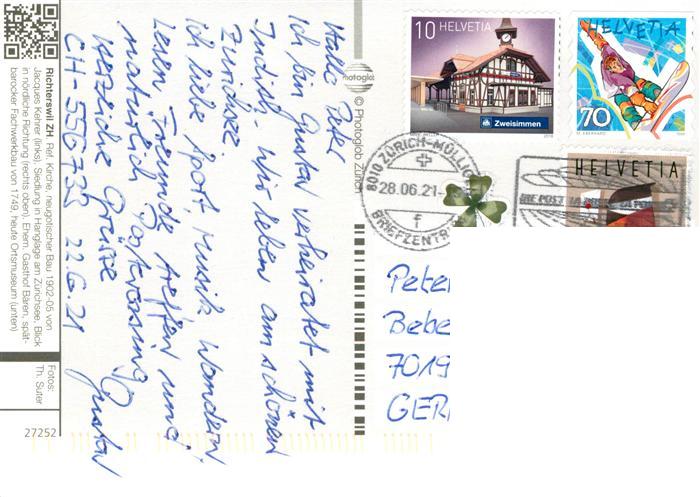 Hallo Peter
Ich bin Gustav verheiratet mit
Judith. Wir leben am schönen
Zürichsee
ich liebe Sport Musik Wandern,
Lesen Freunde treffen und
natürlich Postcrossing
Herzliche Grüsse Gustav
CH-556733 22.6.21
Richterswil ZH Ref. Kirche, neugotischer Bau 1902-05 von
Jacques Kehrer (links), Siedlung in Hanglage am Zürichsee, Blick
in nördliche Richtung (rechts oben), Ehem. Gasthof Bären, spät-
barocker Fachwerkbau von 1749, heute Ortsmuseum (unten)
Fotos:
Th. Suter
27252
photoglob
© Photoglob Zürich
10 HELVETIA
Zweisimmen
HELVETIA
70
HELVETIA
8010 ZÜRICH-MÜLLIG
28.06.21-
f
BRIEFZENTR
DIE POST LA POSTE LA POST
Peter
Bebe
7019
GER